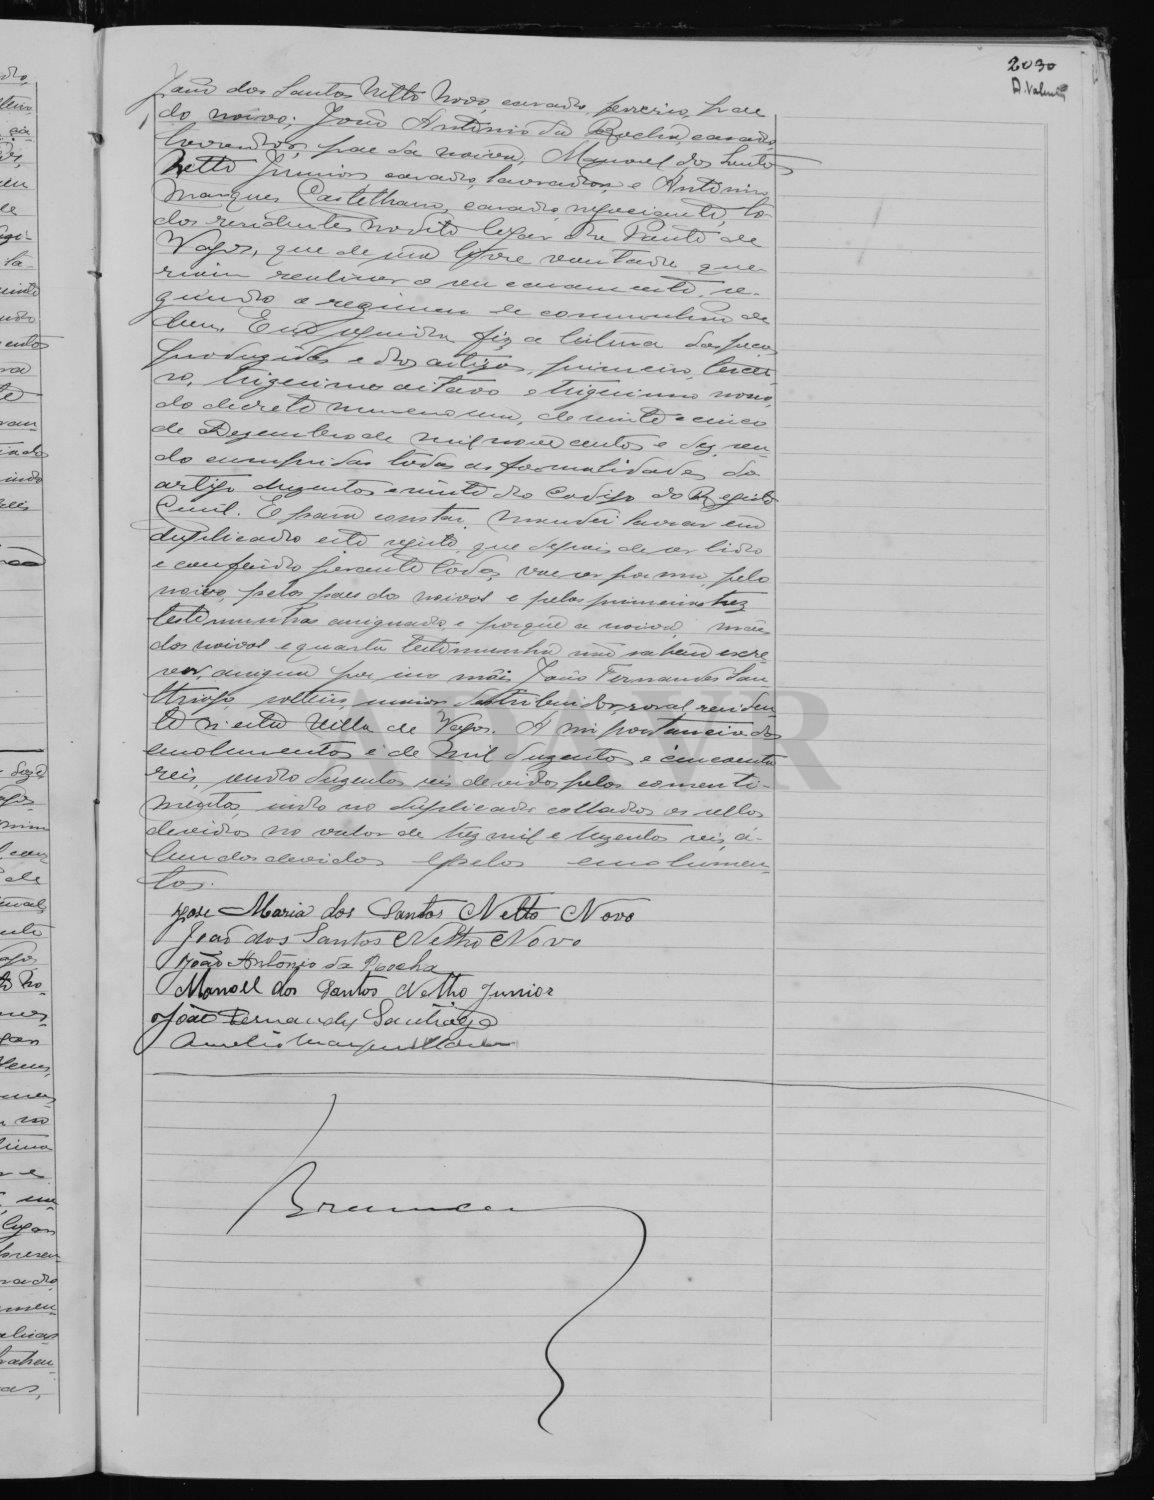 2030
João dos Santos Netto Novo, casado, ferreiro, pae
do noivo; João Antonio da Rocha, casado,
lavrador, pae da noiva, Manoel dos Santos
Netto Junior casado, lavrador, e Antonio
Marques Castelhano, casado, negociante, to-
dos residentes no dito logar de Ponte de
Vagos, que de sua livre vontade que-
riam realizar o seu casamento, se-
gundo o regimen de communhão de
bens. Em seguida fiz a leitura das peças
produzidas e dos artigos, primeiro, tercei-
ro, trigesimo oitavo e trigesimo nono,
do decreto numero um, de vinte e cinco
de Dezembro de mil nove centos e dez, sen-
do cumpridas todas as formalidades do
artigo duzentos e vinte do Codigo do Registo
Civil. E para constar, mandei lavrar em
duplicado este registo, que depois de ser lido
e conferido perante todos, vae ser por mim, pelo
noivo, pelos paes dos noivos e pelas primeiras trez
testemunhas assignado, e porque a noiva, mães
dos noivos e quarta testemunha não sabem escre-
ver, assigna por isso João Fernandes San-
thiago, solteiro, maior, distribuidor rural residen-
te n'esta Villa de Vagos. A importancia dos
emolumentos é de mil duzentos e cincoenta
reis, sendo duzentos reis devidos pelos consenti-
mentos, indo no duplicado collados os sellos
devidos no valor de trez mil e trezentos reis, a-
lem dos devidos pelos emolumen-
tos.
José Maria dos Santos Netto Novo
João dos Santos Netto Novo
João António da Rocha
Manoel dos Santos Netto Junior
João Fernandes Santiago
ADAVR